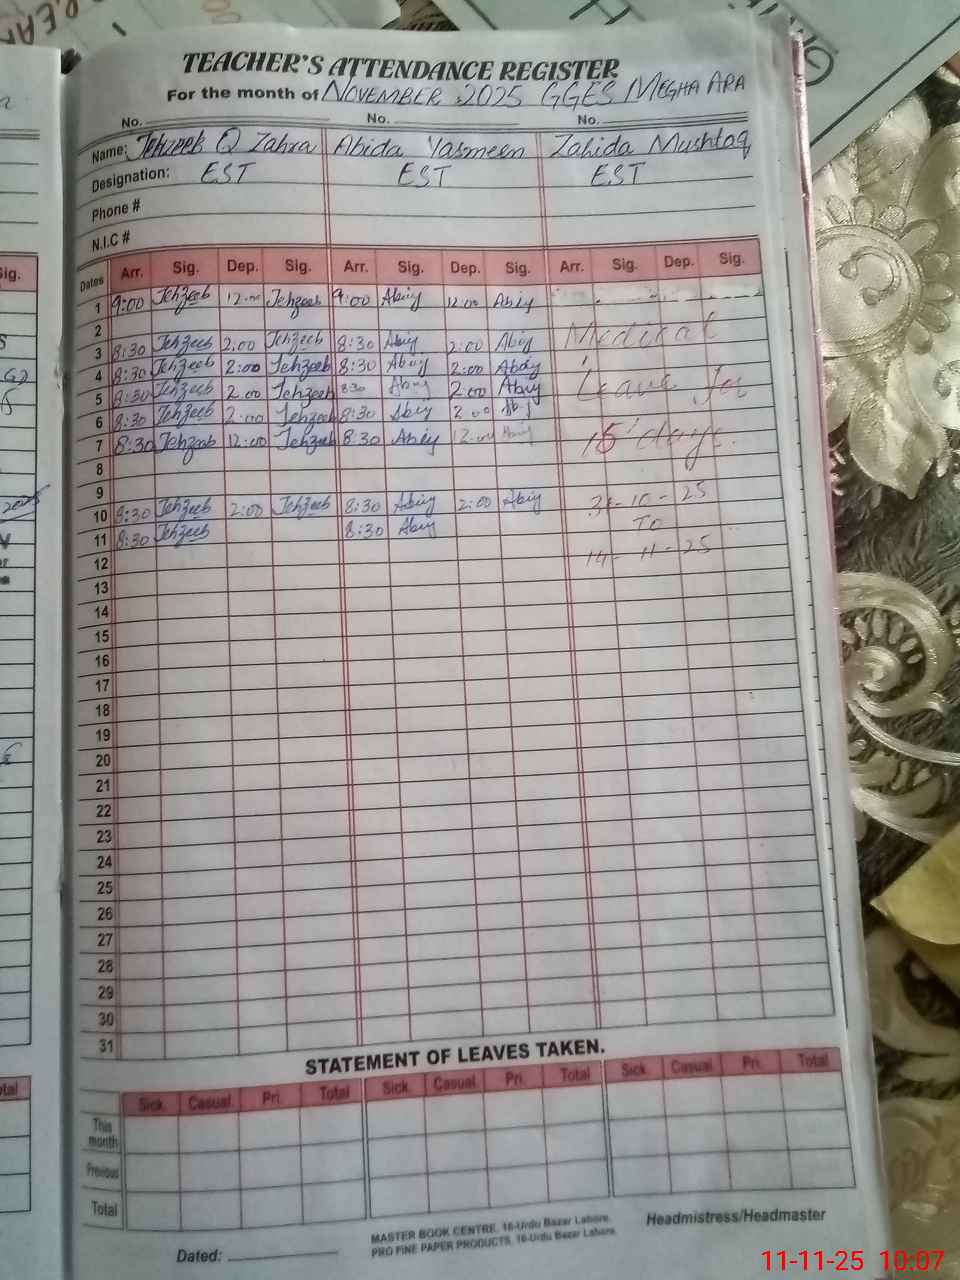 TEACHER'S ATTENDANCE REGISTER
For the month of NOVEMBER 2025 GGES MEGHA ARA
No. No. No.
Name: Tehzeeb Q Zahra Abida Yasmeen Zahida Mushtaq
Designation: EST EST EST
Phone #
N.I.C #
Dates Arr. Sig. Dep. Sig. Arr. Sig. Dep. Sig. Arr. Sig. Dep. Sig.
1 9:00 Tehzeeb 12:00 Tehzeeb 9:00 Abiy 12:00 Abiy
2 Medical
3 8:30 Tehzeeb 2:00 Tehzeeb 8:30 Abiy 2:00 Abiy
4 8:30 Tehzeeb 2:00 Tehzeeb 8:30 Abiy 2:00 Abiy
5 8:30 Tehzeeb 2:00 Tehzeeb 8:30 Abiy 2:00 Abiy Leave for
6 8:30 Tehzeeb 2:00 Tehzeeb 8:30 Abiy 2:00 Abiy
7 8:30 Tehzeeb 12:00 Tehzeeb 8:30 Abiy 12:00 Abiy 15 days.
8
9
10 8:30 Tehzeeb 2:00 Tehzeeb 8:30 Abiy 2:00 Abiy 31-10-25
11 8:30 Tehzeeb 8:30 Abiy To
12 14-11-25
13
14
15
16
17
18
19
20
21
22
23
24
25
26
27
28
29
30
31
STATEMENT OF LEAVES TAKEN.
Sick. Casual. Pri. Total Sick. Casual. Pri. Total Sick. Casual Pri. Total
This month
Previous
Total
Dated:
MASTER BOOK CENTRE, 16-Urdu Bazar Lahore.
PRO FINE PAPER PRODUCTS, 16-Urdu Bazar Lahore.
Headmistress/Headmaster
11-11-25 10:07